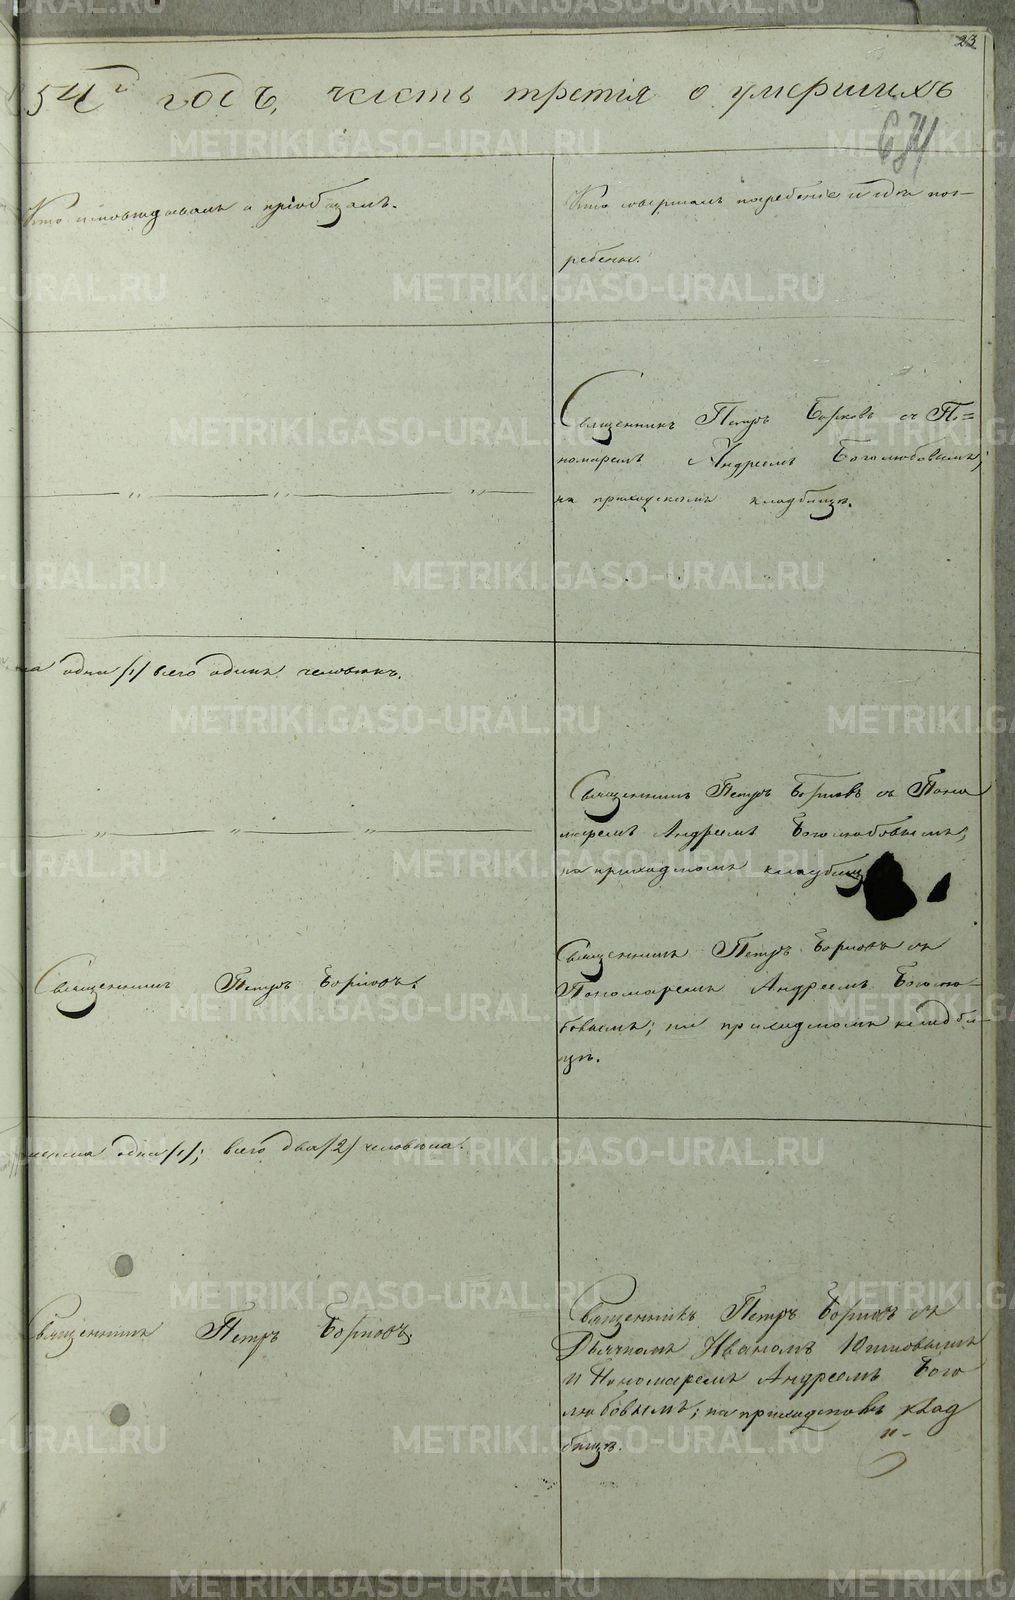 23
54й годъ, часть третія о умершихъ
674
Кто исповѣдывалъ и пріобщалъ.
Кто совершалъ погребеніе и гдѣ пог-
ребены.
Священникъ Петръ Борковъ съ По=
номаремъ Андреемъ Боголюбовымъ;
на приходскомъ кладбищѣ.
одна /1/ всего одинъ человѣкъ.
Священникъ Петръ Борковъ съ Поно
маремъ Андреемъ Боголюбовымъ;
на приходскомъ кладбищ
Священникъ Петръ Борковъ.
Священникъ Петръ Борковъ съ
Пономаремъ Андреемъ Боголю-
бовымъ; на приходскомъ кладби-
щѣ.
одна /1/; всего два /2/ человѣка.
Священникъ Петръ Борковъ.
Священникъ Петръ Борковъ съ
Дьячкомъ Иваномъ
и Пономаремъ Андреемъ Бого
любовымъ; на приходскомъ клад
бищѣ.
METRIKI.GASO-URAL.RU